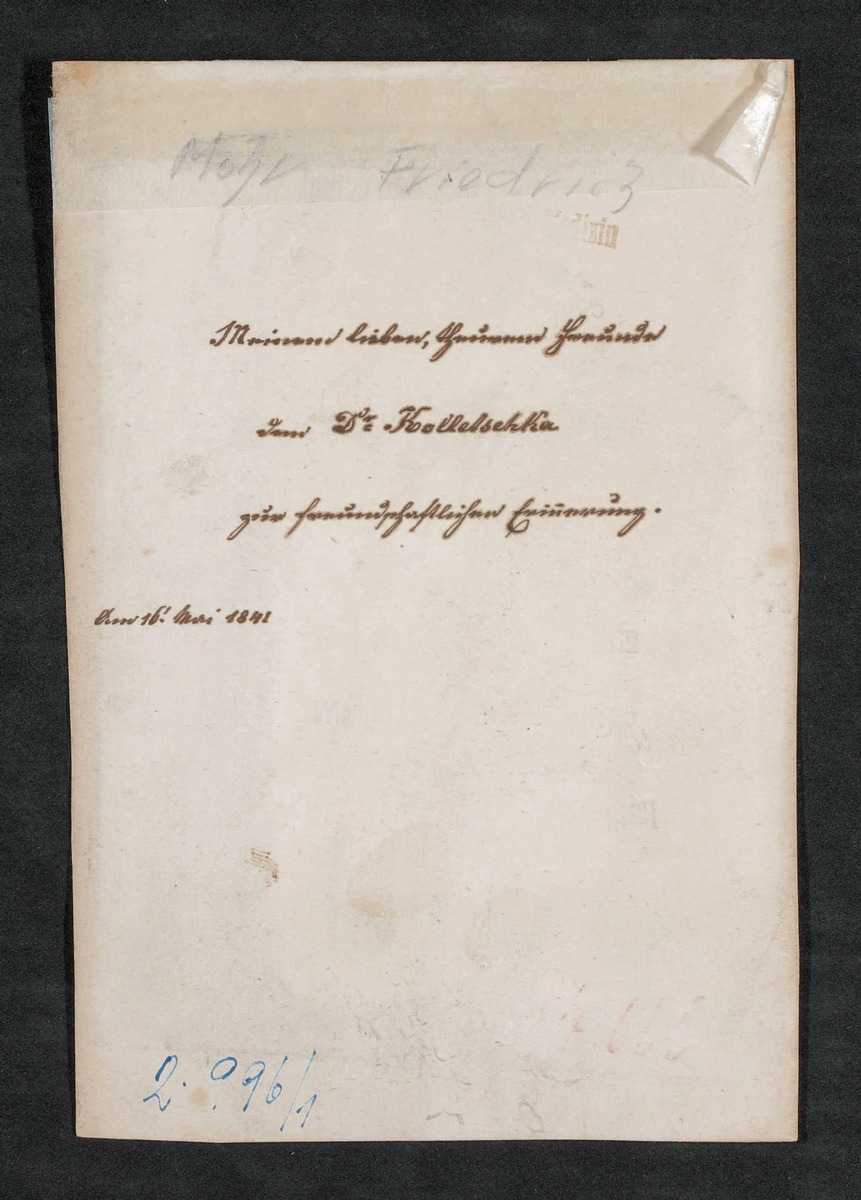 Mohr Friedrich
Meinem lieben, theurem Freunde
dem Dr. Kolletschka
zur freundschaftlichen Erinnerung.
Am 16t Mai 1841
2. 996/1